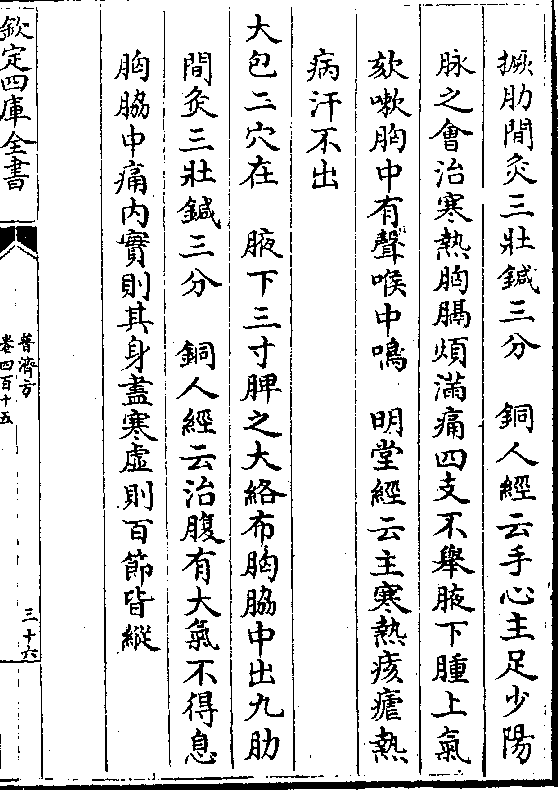 撅肋間灸三壯鍼三分　銅人經云手心主足少陽
脉之會治寒熱胸膈煩滿痛四支不舉腋下腫上氣
欬嗽胸中有聲喉中鳴　明堂經云主寒熱痎瘧熱
病汗不出
大包二穴在　腋下三寸脾之大絡布胸脇中出九肋
間灸三壯鍼三分　銅人經云治腹有大氣不得息
胸脇中痛内實則其身盡寒虚則百節皆縱
欽定四庫全書
普濟方
卷四百十五
三十六